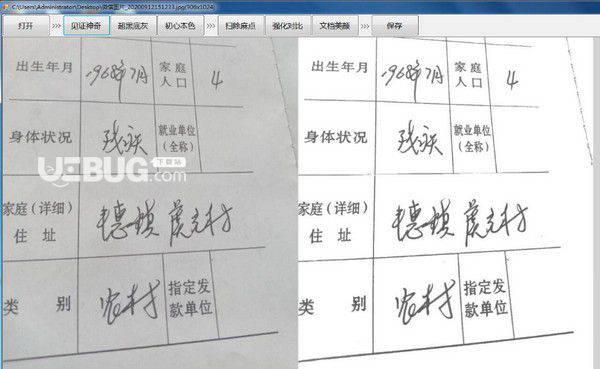 C:\Users\Administrator\Desktop\微信图片_20200912151233.jpg(906x1024)
打开 >>> 见证神奇 超黑底灰 初心本色 >>> 扫除麻点 强化对比 文档美颜 >>> 保存
出生年月 1968年7月 家庭人口 4
身体状况 残疾 就业单位(全称)
家庭(详细)住址
类别 农村 指定发款单位
UEBUG.com
下载站
出生年月 1968年7月 家庭人口 4
身体状况 残疾 就业单位(全称)
家庭(详细)住址
类别 农村 指定发款单位